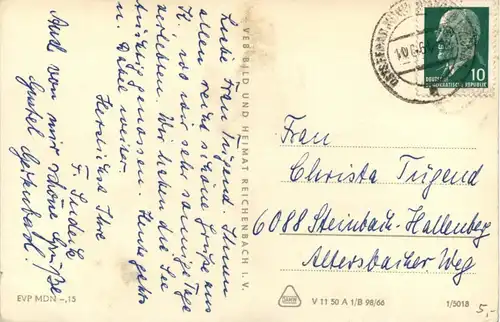 Liebe Frau Tugend! Ihnen
allen recht schöne Grüße aus
K. wo wir sehr sonnige Tage
verleben. Wir haben die See
genossen. Heute geht's
n. Hause weiter.
Herzlichst Ihre
Auch von mir schöne Grüße
VEB BILD UND HEIMAT REICHENBACH I. V.
10
DEUTSCHE
DEMOKRATISCHE REPUBLIK
Frau
Christa Tugend
6088 Steinbach-Hallenberg
Altersbacher Weg
EVP MDN -,15
V 11 50 A 1/B 98/66
1/5018
5,-